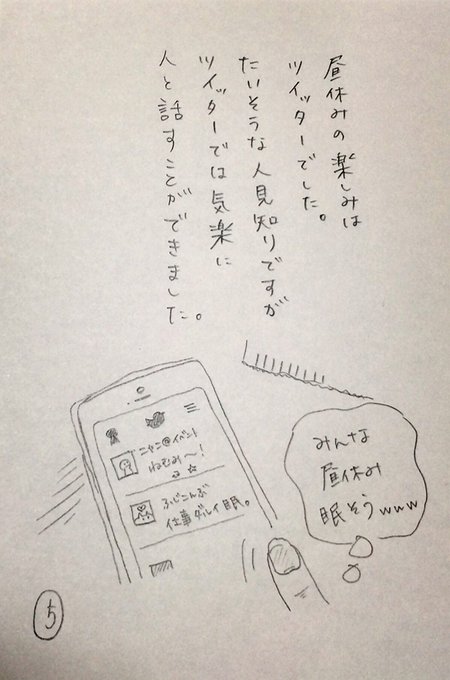 昼休みの楽しみは
ツイッターでした。
たいそうな人見知りですが
ツイッターでは気楽に
人と話すことができました。
ニャニ@イベント
ねむみ〜!
ふじこんぶ
仕事ダルイ眠。
みんな
昼休み
眠そうwww
5